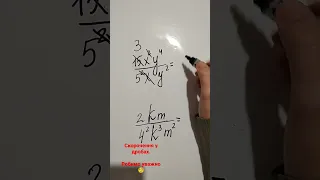 3
15x²y⁴
5²xy² =
2km
4²k³m² =
Скорочення у
дробах
Робимо уважно